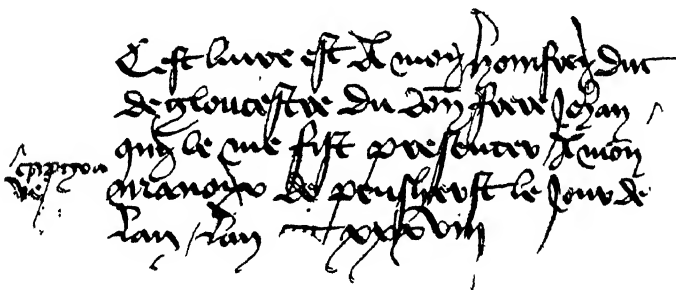 Cest livre est A moy homfrey duc
de gloucestre du don frere Jehan
quy le me fist presenter A mon
manoyr de pensherst le Jour de
lan lan xxxviii